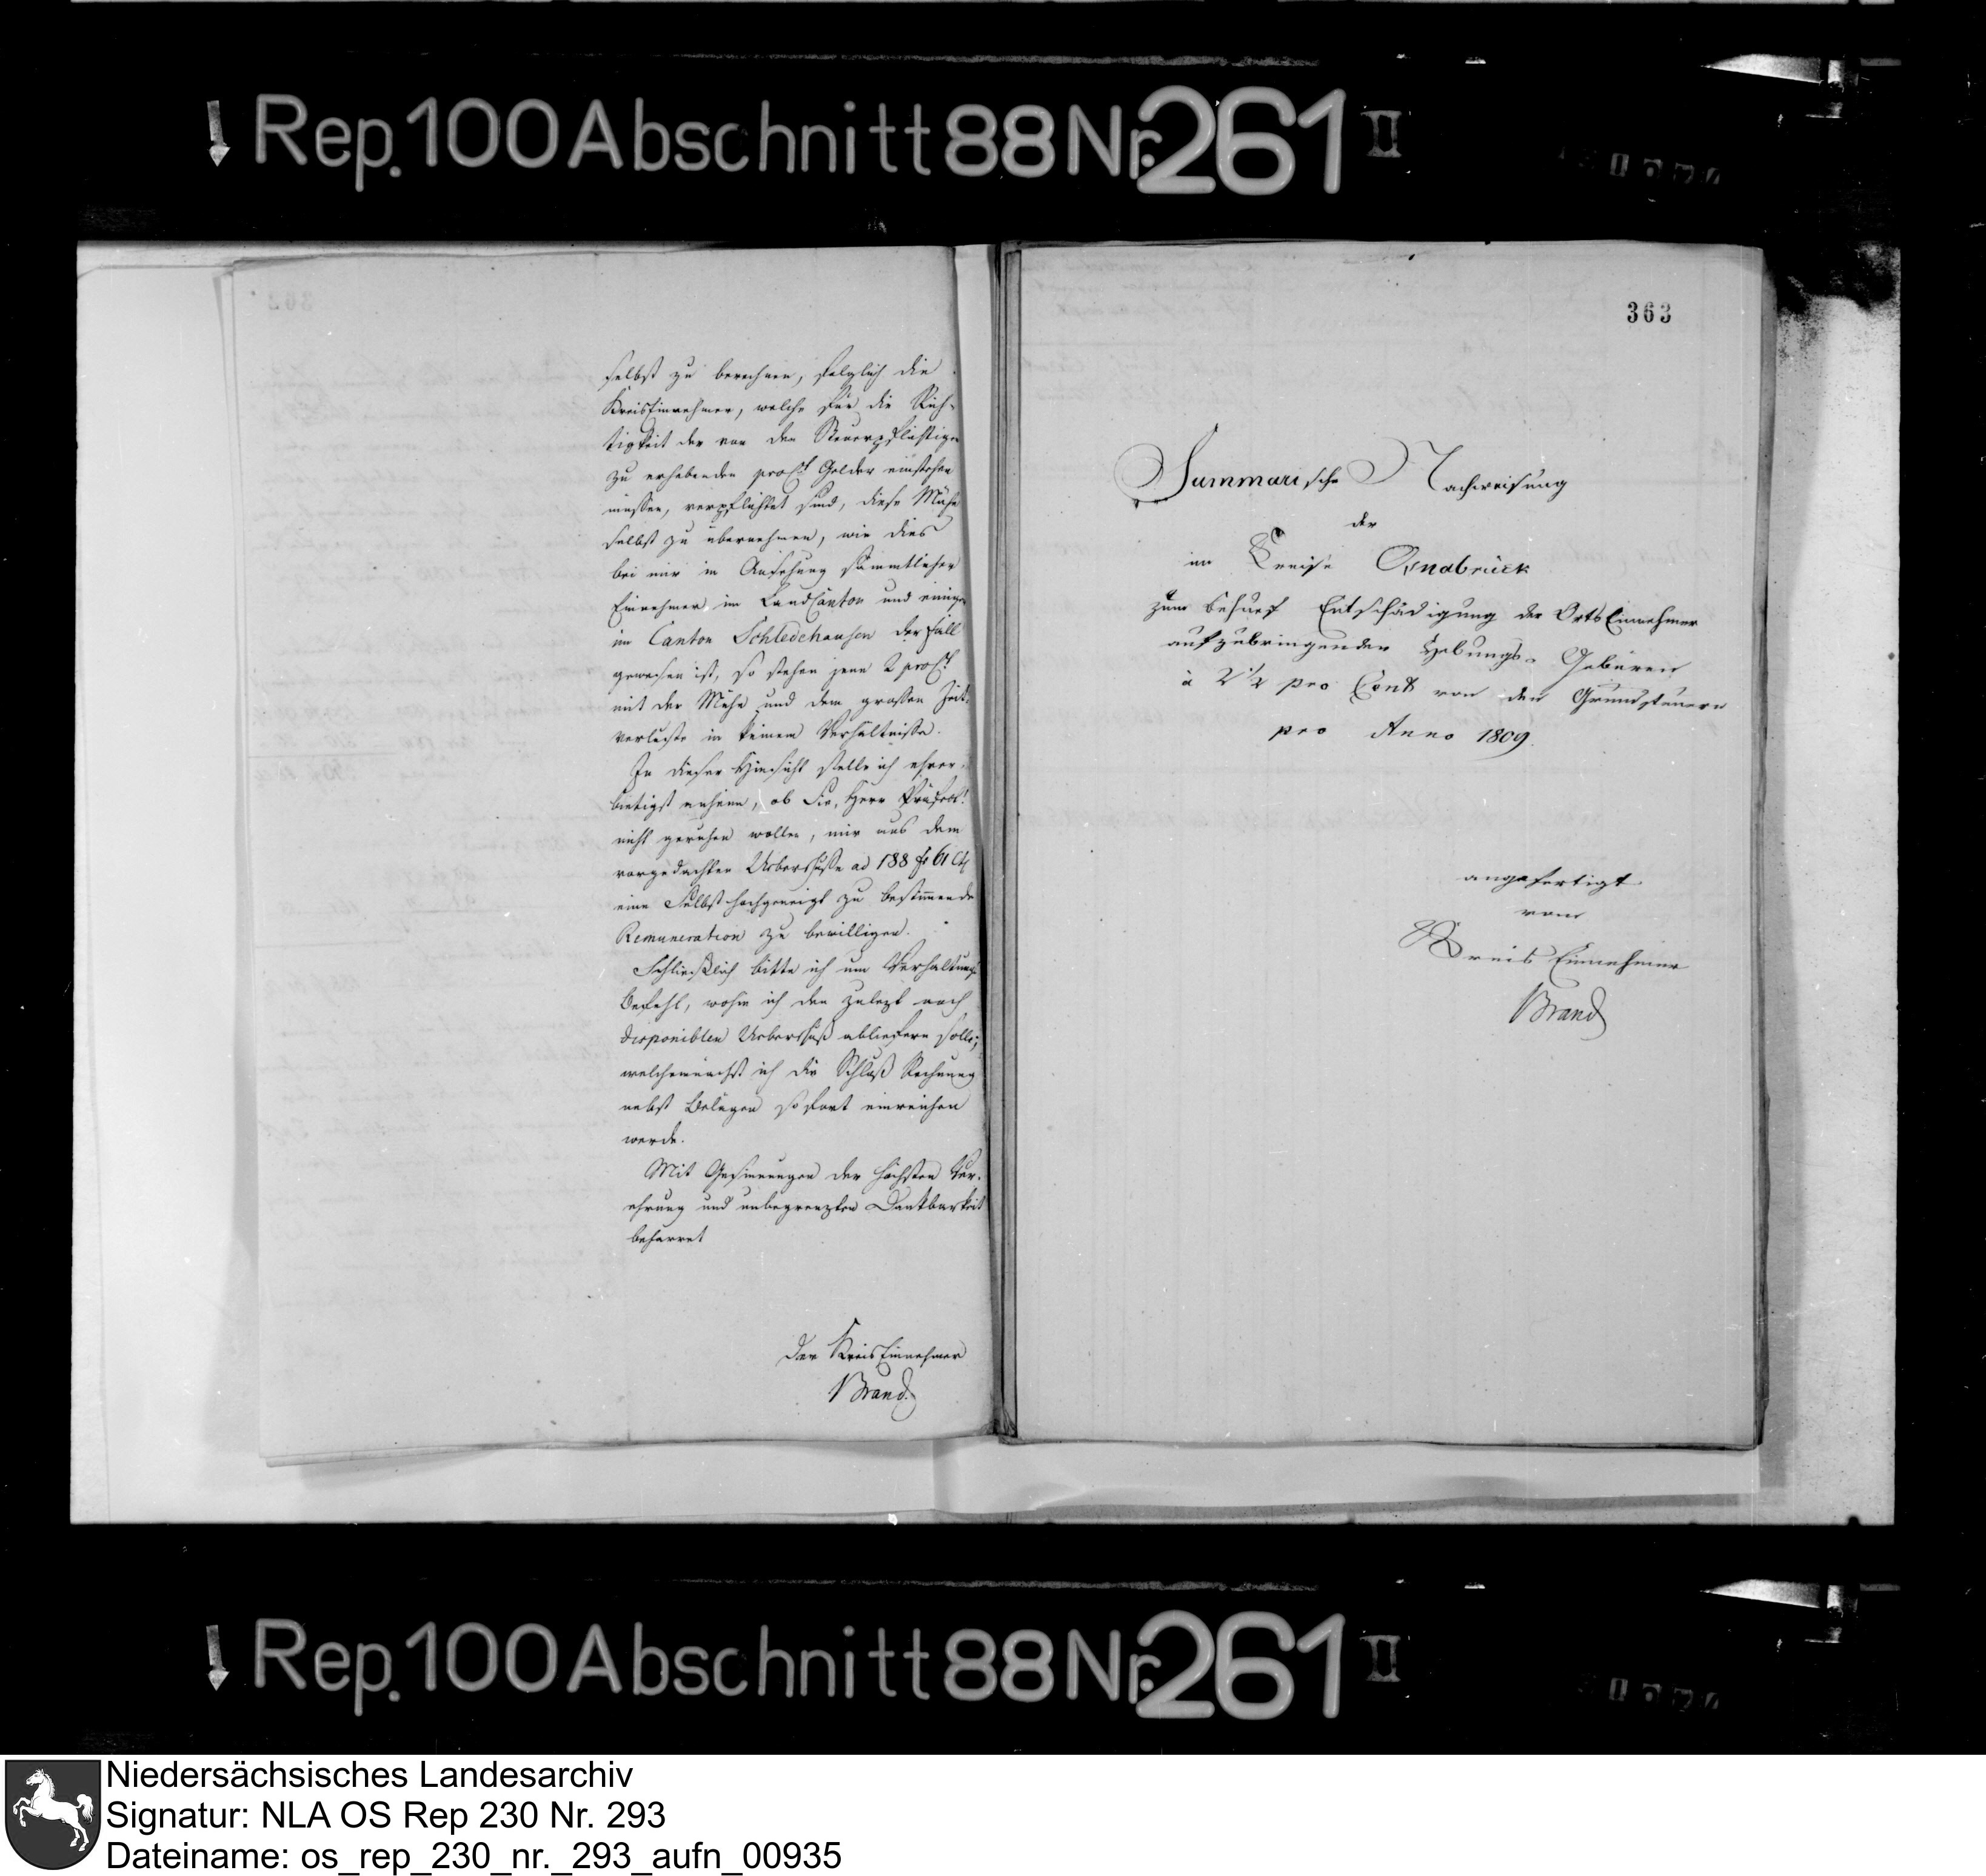 Rep. 100 Abschnitt 88 Nr. 261 II
selbst zu berechnen, folglich die
KreisEinnehmer, welche für die Rich-
tigkeit der von den Steuerpflichtigen
zu erhebenden proCt Gelder einstehen
müssen, verpflichtet sind, diese Mühe
selbst zu übernehmen, wie dies
bei mir in Ansehung sämmtlicher
Einnehmer im LandCanton und einiger
im Canton Schledehausen der Fall
gewesen ist, so stehen jene 2 proCt
mit der Mühe und dem großen Zeit-
verluste in keinem Verhältnisse.
In dieser Hinsicht stelle ich ehrer-
bietigst anheim, ob Sie, Herr Präfect!
nicht geruhen wollen, mir aus dem
vorgedachten Ueberschusse ad 188 fr 61 Ct
eine Selbst hochgeneigt zu bestimmende
Remuneration zu bewilligen.
Schließlich bitte ich um Verhaltungs
Befehl, wohin ich den zulezt noch
disponiblen Ueberschuß abliefern solle;
welchemnächst ich die Schluß Rechnung
nebst Belägen sofort einreichen
werde.
Mit Gesinnungen der höchsten Ver-
ehrung und unbegrenzten Dankbarkeit
beharret
Der KreisEinnehmer
Brand.
363
Summarische Nachweisung
der
im Kreise Osnabrück
zum Behuef Entschädigung der OrtsEinnehmer
aufzubringenden Hebungs-Gebüren
à 2 1/2 pro Cent von den Grundsteuern
pro Anno 1809.
angefertigt
vom
Kreis Einnehmer
Brand
Rep. 100 Abschnitt 88 Nr. 261 II
Niedersächsisches Landesarchiv
Signatur: NLA OS Rep 230 Nr. 293
Dateiname: os_rep_230_nr._293_aufn_00935